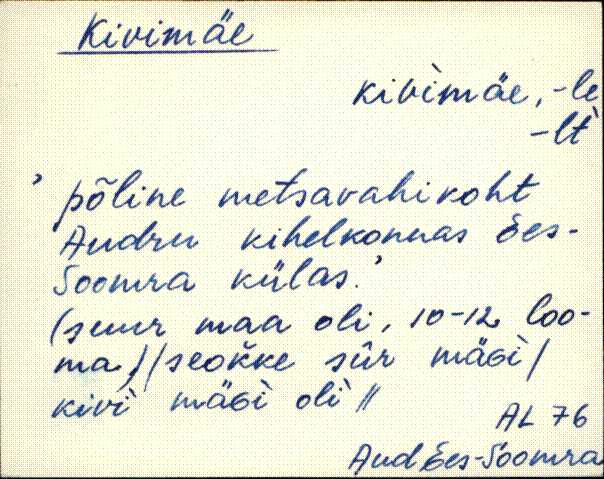 Kivimäe
kivìmäe, -le
-lt
' põline metsavahikoht
Audru kihelkonnas Ees-
Soomra külas.'
(suur maa oli, 10-12 loo-
ma) / seokke sūr mäGì /
kivì mäGì olì //
AL 76
Aud Ees-Soomra